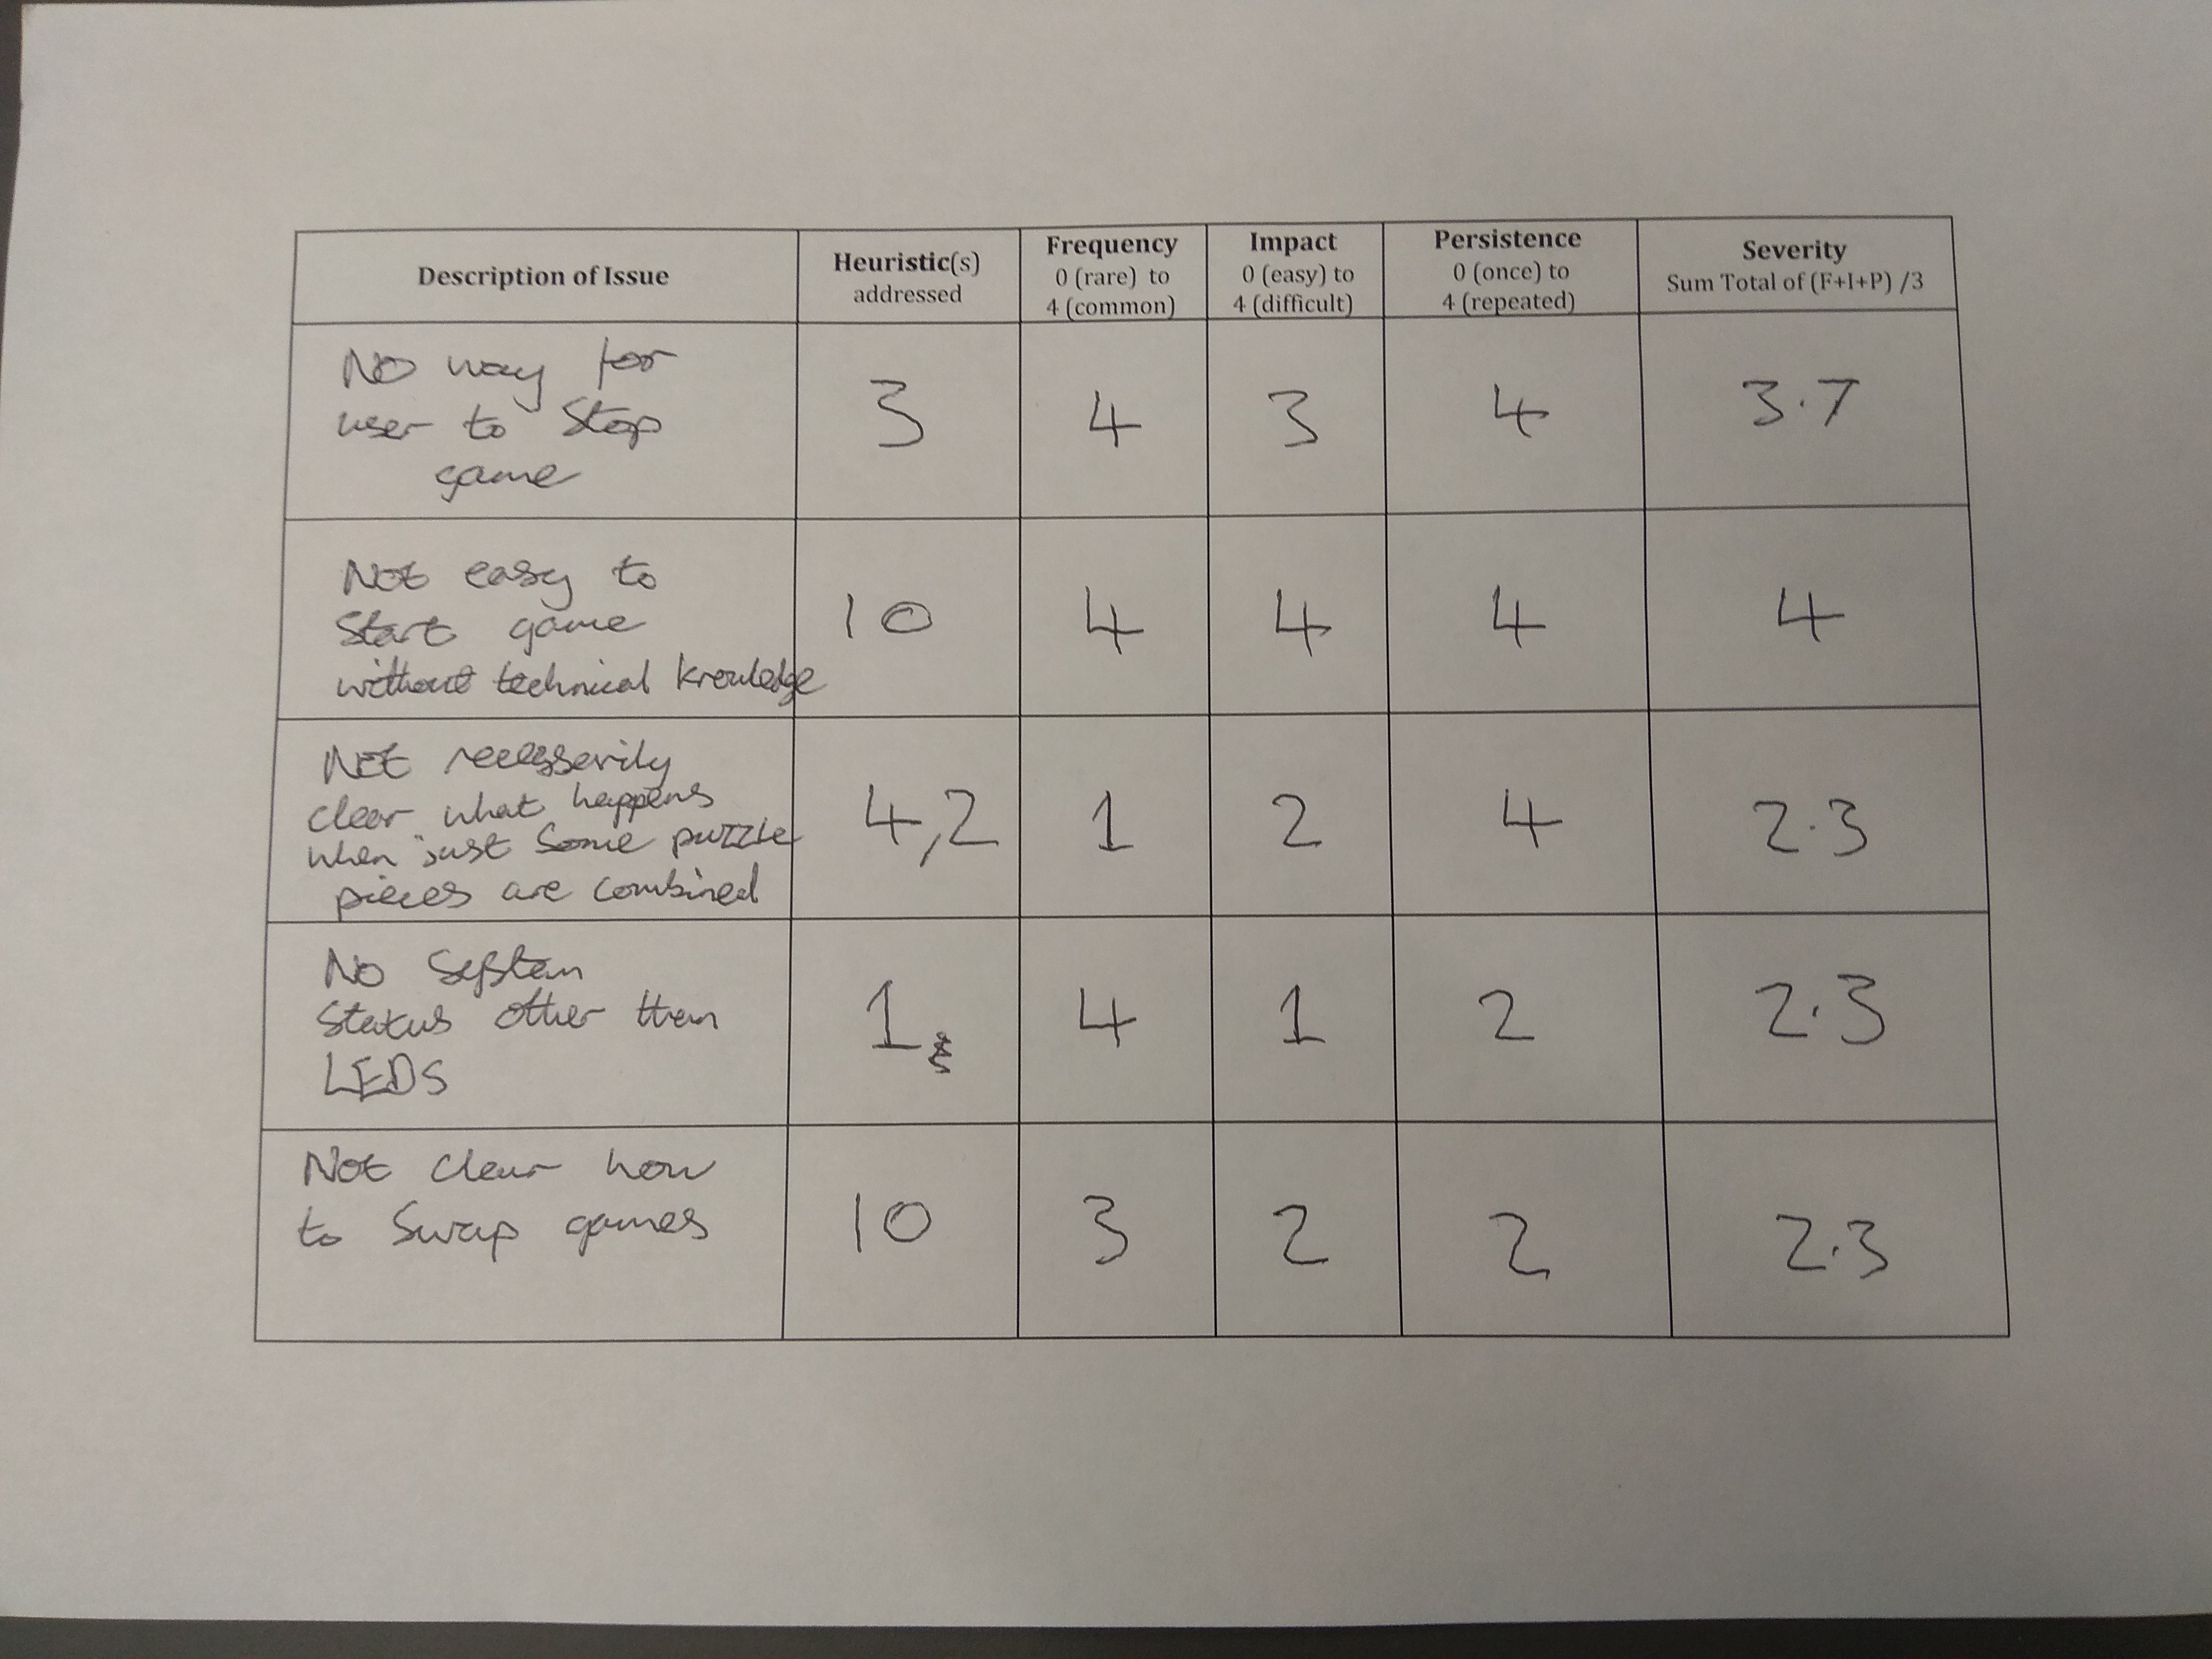 Description of Issue
Heuristic(s)
addressed
Frequency
0 (rare) to
4 (common)
Impact
0 (easy) to
4 (difficult)
Persistence
0 (once) to
4 (repeated)
Severity
Sum Total of (F+I+P) /3
NO way for
user to Stop
game
3
4
3
4
3.7
Not easy to
Start game
without technical knowledge
10
4
4
4
4
Not necesserily
clear what happens
when just Some puzzle
pieces are combined
4,2
1
2
4
2.3
No System
Status other than
LEDS
1
4
1
2
2.3
Not clear how
to Swap games
10
3
2
2
2.3